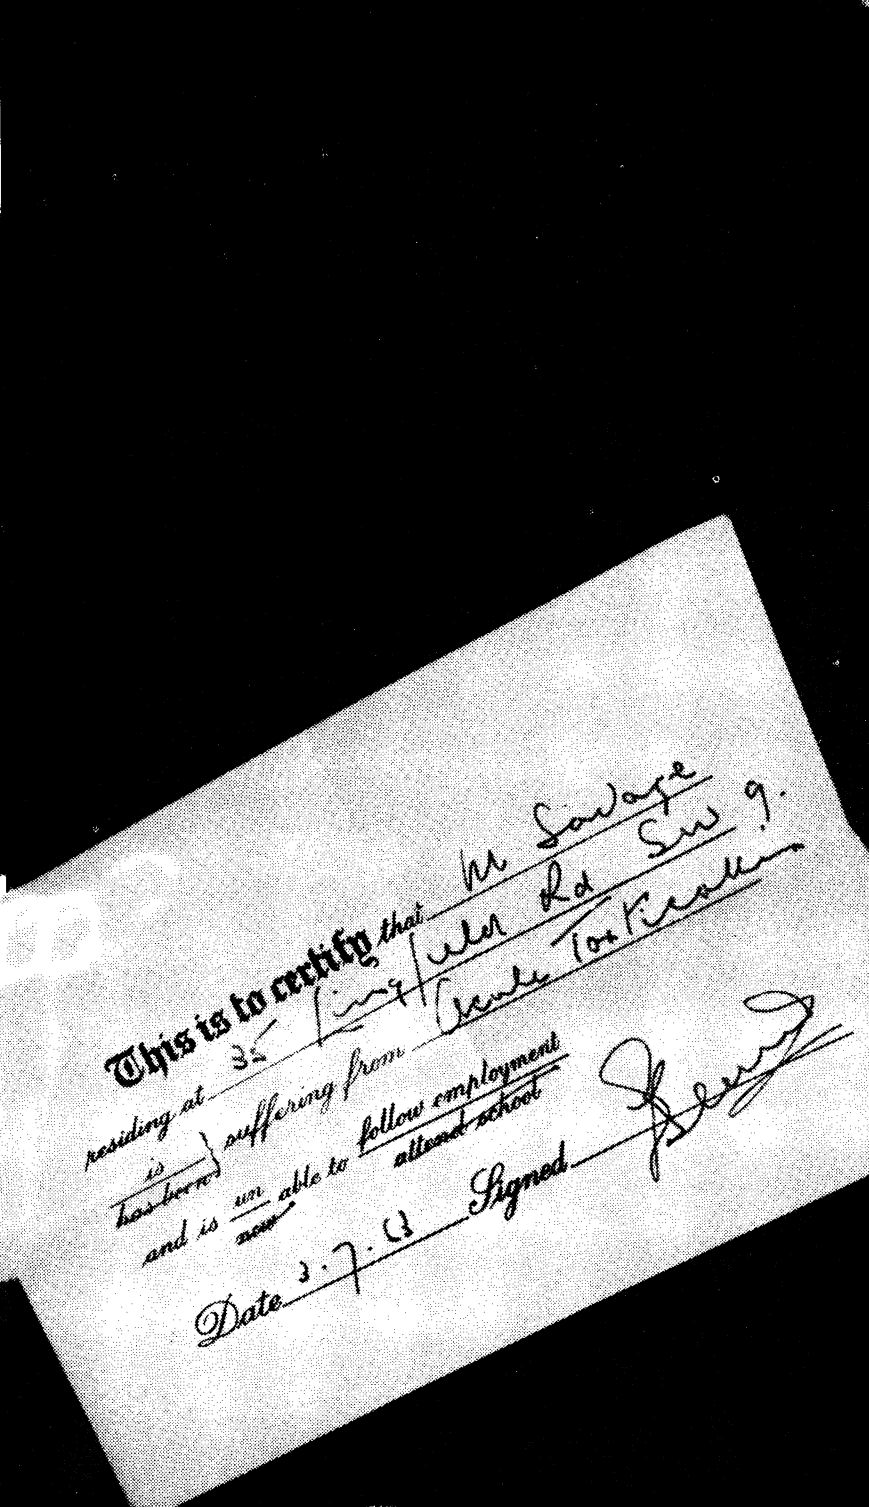 This is to certify that M Savage
residing at 35 Lingfield Rd SW 9.
is } suffering from Acute Tonsillitis
has been
and is un able to follow employment
now attend school
Date 3.7.63 Signed